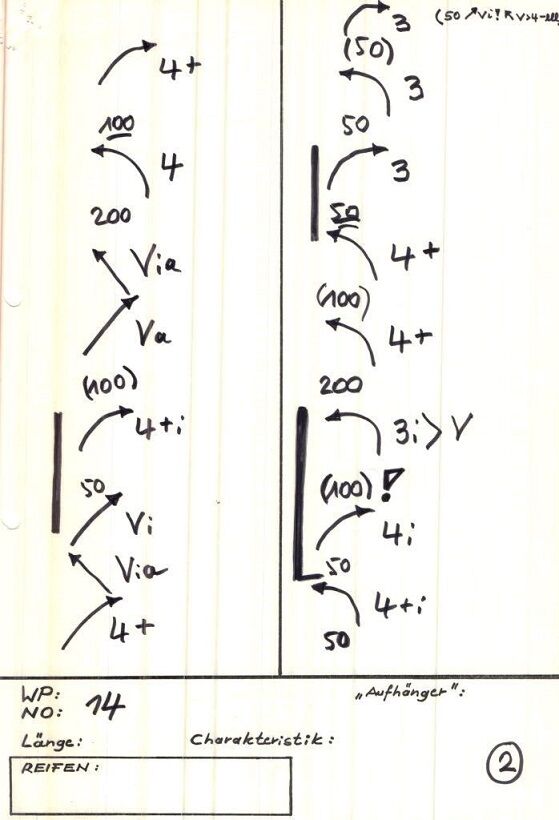 4+
100
4
200
Via
Va
(100)
4+i
50
Vi
Via
4+
3
(50 Vi! V>4
(50)
3
50
3
50
4+
(100)
4+
200
3i > V
(100)!
4i
50
4+i
50
WP:
NO: 14
„Aufhänger":
Länge:
Charakteristik:
REIFEN:
2